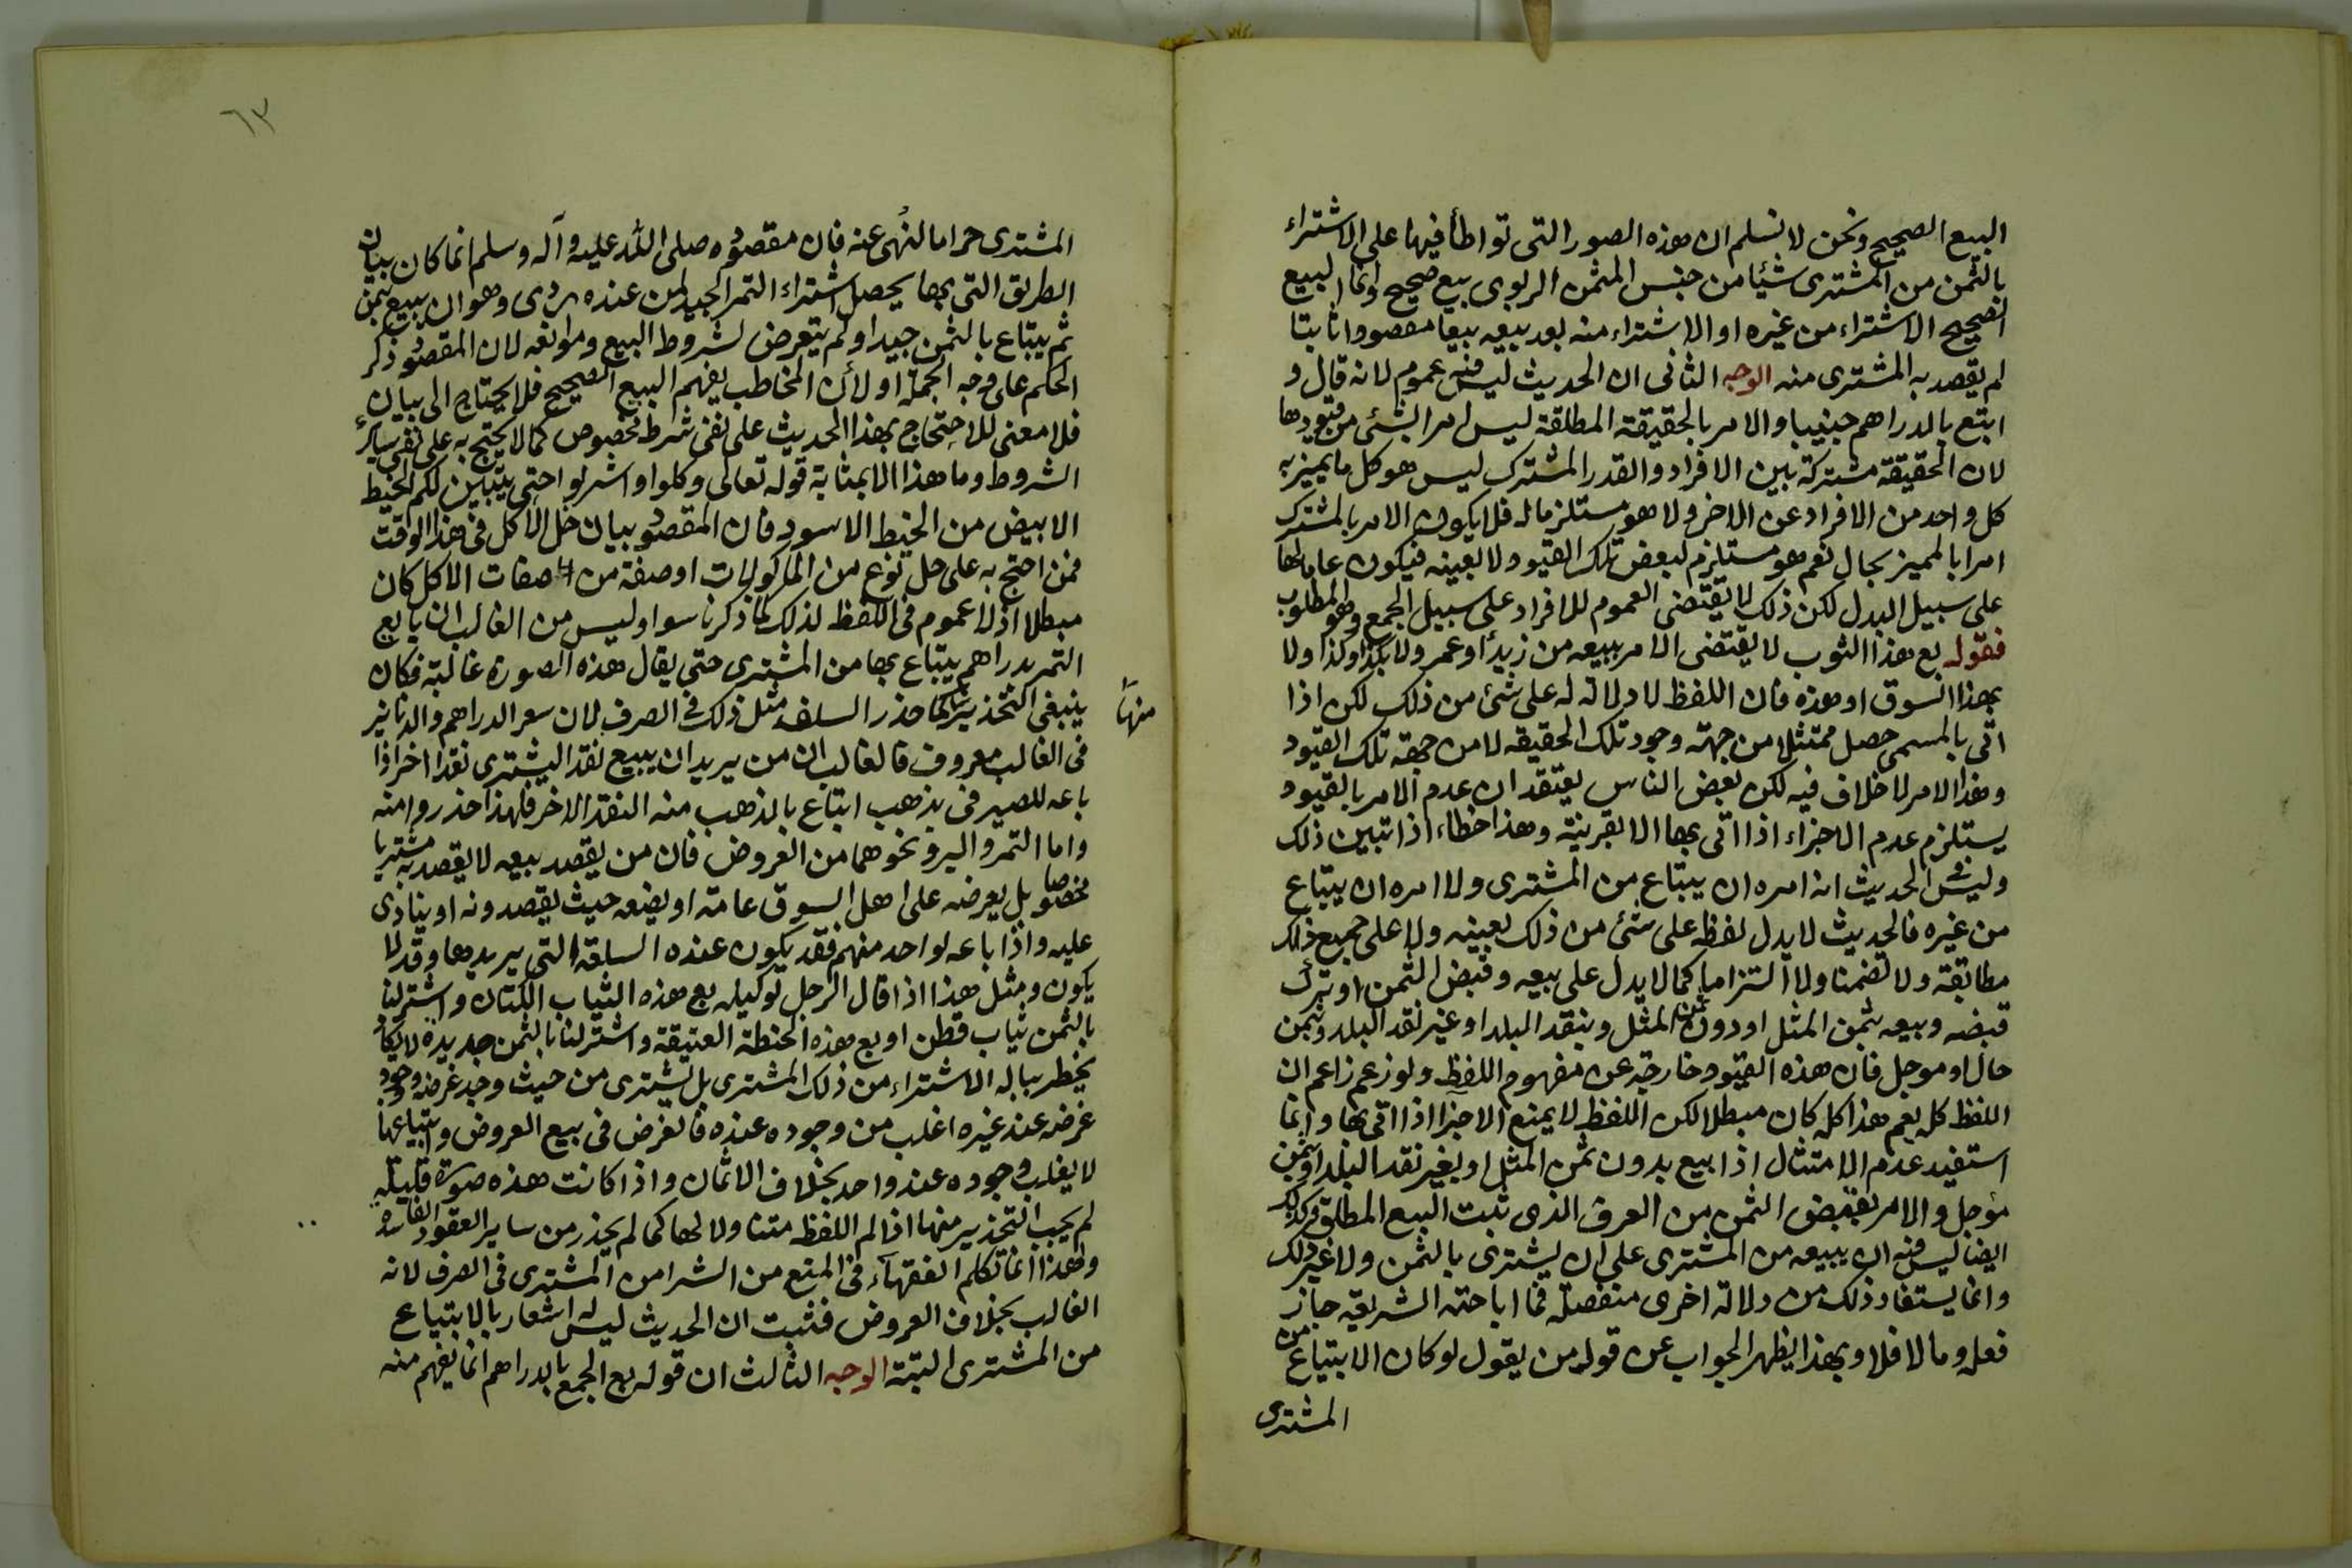 البيع الصحيح ونحن لا نسلم ان هذه الصور التى تواطأ فيها على الاشتراء
بالثمن من المشترى شيئا من جنس المثمن الربوى بيع صحيح وانما البيع
الصحيح الاشتراء من غيره او الاشتراء منه بعد بيعه بيعا مقصودا ثابتا
لم يقصد به المشترى منه الوجه الثانى ان الحديث ليس فيه عموم لانه قال و
ابتع بالدراهم جنيبا والامر بالحقيقة المطلقة ليس امر البشئ من قيودها
لان الحقيقة مشتركة بين الافراد والقدر المشترك ليس هو كل ما يميز به
كل واحد من الافراد عن الاخر ولا هو مستلزما له فلا يكون الامر بالمشترك
امرا بالمميز بحال نعم هو مستلزم لبعض تلك القيود ولا بعينه فيكون عاما لها
على سبيل البدل لكن ذلك لا يقتضى العموم للافراد على سبيل الجمع وهو المطلوب
فقوله بع هذا الثوب لا يقتضى الامر ببيعه من زيد او عمر ولا بكذا وكذا ولا
بهذا السوق او هذه فان اللفظ لا دلالة له على شئ من ذلك لكن اذا
اتى بالمسمى حصل ممتثلا من جهة وجود تلك الحقيقه لا من جهة تلك القيود
وهذا الامر لا خلاف فيه لكن بعض الناس يعتقد ان عدم الامر بالقيود
يستلزم عدم الاجزاء اذا اتى بها الا بقرينة وهذا خطاء اذا تبين ذلك
وليس فى الحديث انه امره ان يبتاع من المشترى ولا امره ان يبتاع
من غيره فالحديث لا يدل لفظه على شئ من ذلك بعينه ولا على جميع ذلك
مطابقة ولا تضمنا ولا التزاما كما لا يدل على بيعه وقبض الثمن او ترك
قبضه وبيعه بثمن المثل او دون ثمن المثل وبنقد البلد او غير نقد البلد وثمن
حال او موجل فان هذه القيود خارجة عن مفهوم اللفظ ولو زعم زاعم ان
اللفظ كله يعم هذا كله كان مبطلا لكن اللفظ لا يمنع الاجزا اذا اتى بها وانما
استفيد عدم الامتثال اذا بيع بدون ثمن المثل او بغير نقد البلد او بثمن
مؤجل والامر بقبض الثمن من العرف الذى ثبت البيع المطلق وكذلك
ايضا ليس فيه ان يبيعه من المشترى على ان يشترى بالثمن ولا غير ذلك
وانما يستفاد ذلك من دلالة اخرى منفصلة فما اباحته الشريعه جاز
فعله وما لا فلا وبهذا يظهر الجواب عن قول من يقول لو كان الابتياع من
المشترى
٦٣
المشترى حراما لنهى عنه فان مقصوده صلى الله عليه وآله وسلم انما كان بيان
الطريق التى بها يحصل اشتراء التمر الجيد لمن عنده ردى وهو ان يبيع بثمن
ثم يبتاع بالثمن جيدا ولم يتعرض لشروط البيع وموانعه لان المقصود ذكر
الحكم على وجه الجملة او لأن المخاطب يفهم البيع الصحيح فلا يحتاج الى بيان
فلا معنى للاحتجاج بهذا الحديث على نفى شرط مخصوص كما لا يحتج به على نفى ساير
الشروط وما هذا الا بمثابة قوله تعالى وكلوا واشربوا حتى يتبين لكم الخيط
الابيض من الخيط الاسود فان المقصود بيان حل الاكل فى هذا الوقت
فمن احتج به على حل نوع من الماكولات او صفة من صفات الاكل كان
مبطلا اذ لا عموم فى اللفظ لذلك كما ذكرنا سوا وليس من الغالب ان بايع
التمر بدراهم يبتاع بها من المشترى حتى يقال هذه الصورة غالبة فكان
ينبغى التحذير منها كما حذر السلف مثل ذلك فى الصرف لان سعر الدراهم والدنانير
منها
فى الغالب معروف فالغالب ان من يريد ان يبيع نقدا ليشترى نقدا اخر اذا
باعه للصيرفى بذهب ابتاع بالذهب منه النقد الاخر فلهذا حذروا منه
واما التمر والبر ونحوهما من العروض فان من يقصد بيعه لا يقصد به مشتريا
مخصوصا بل يعرضه على اهل السوق عامة او يضعه حيث يقصدونه او ينادى
عليه واذا باعه لواحد منهم فقد يكون عنده السلعة التى يريدها وقد لا
يكون ومثل هذا اذا قال الرجل لوكيله بع هذه الثياب الكتان واشتر لنا
بالثمن ثياب قطن او بع هذه الحنطة العتيقة واشتر لنا بالثمن جديدة لا يكاد
يخطر بباله الاشتراء من ذلك المشترى بل يشترى من حيث وجد غرضه ووجود
غرضه عند غيره اغلب من وجوده عنده فالغرض فى بيع العروض وابتياعها
لا يغلب وجوده عند واحد بخلاف الاثمان واذا كانت هذه صورة قليلة
لم يجب التحذير منها اذا لم اللفظ متناولا لها كما لم يحذر من ساير العقود الفاسدة
ولهذا انما تكلم الفقهاء فى المنع من الشرا من المشترى فى الصرف لانه
الغالب بخلاف العروض فثبت ان الحديث ليس له اشعار بالابتياع
من المشترى البتة الوجه الثالث ان قوله بع الجمع بالدراهم انما يفهم منه